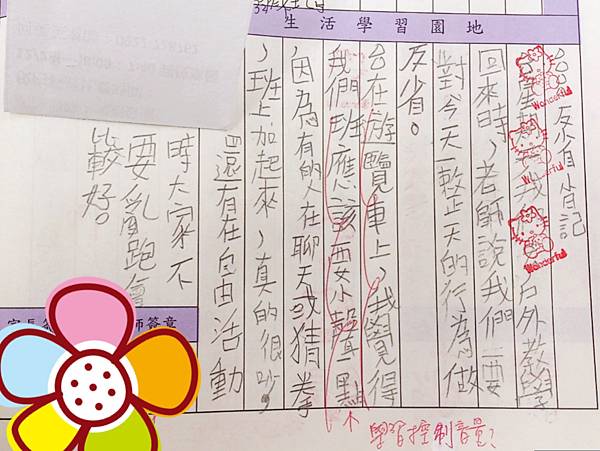 生活學習園地
反省
記
戶外教學
回來時，老師說我們要
對今天一整天的行為做
反省。
在遊覽車上，我覺得
我們班應該要小聲點
因為有的人在聊天或猜拳
，班上加起來，真的很吵，
還有在自由活動
時大家不
要亂跑會
比較好。
Wonderful
Wonderful
Wonderful
學習控制音量！
師簽章